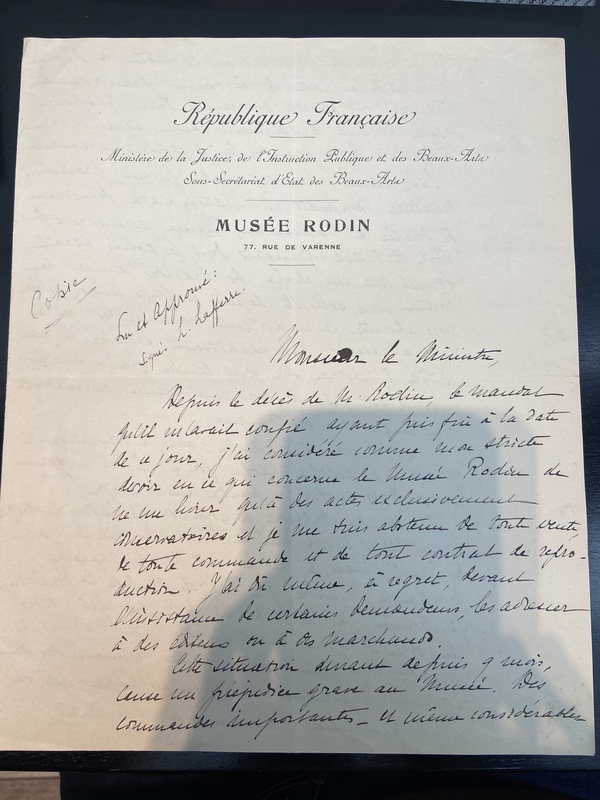 République Française
Ministère de la Justice, de l'Instruction Publique et des Beaux-Arts
Sous-Secrétariat d'Etat des Beaux-Arts
MUSÉE RODIN
77. RUE DE VARENNE
Copie
Lu et Approuvé:
signé. L. Lafferre.
Monsieur le Ministre,
Depuis le décès de M. Rodin, le mandat
qu'il m'avait confié ayant pris fin à la date
de ce jour, j'ai considéré comme mon stricte
devoir en ce qui concerne le Musée Rodin de
ne me livrer qu'à des actes exclusivement
conservatoires et je me suis abstenu de toute vente,
de toute commande et de tout contrat de repro-
duction. J'ai dû même, à regret, devant
l'insistance de certains demandeurs, les adresser
à des éditeurs ou à des marchands.
Cette situation durant depuis 9 mois,
cause un préjudice grave au Musée. Des
commandes importantes _ et même considérables